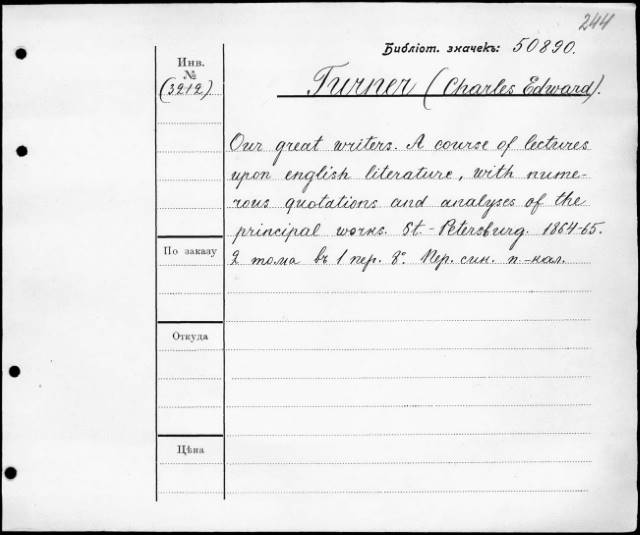 244
Библіот. значекъ: 50890.
Инв.
№
(3212)
Turner (Charles Edward).
Our great writers. A course of lectures
upon english literature, with nume-
rous quotations and analyses of the
principal works. St.-Petersburg. 1864-65.
2 тома въ 1 пер. 8°. Пер. син. п.-кал.
По заказу
Откуда
Цѣна